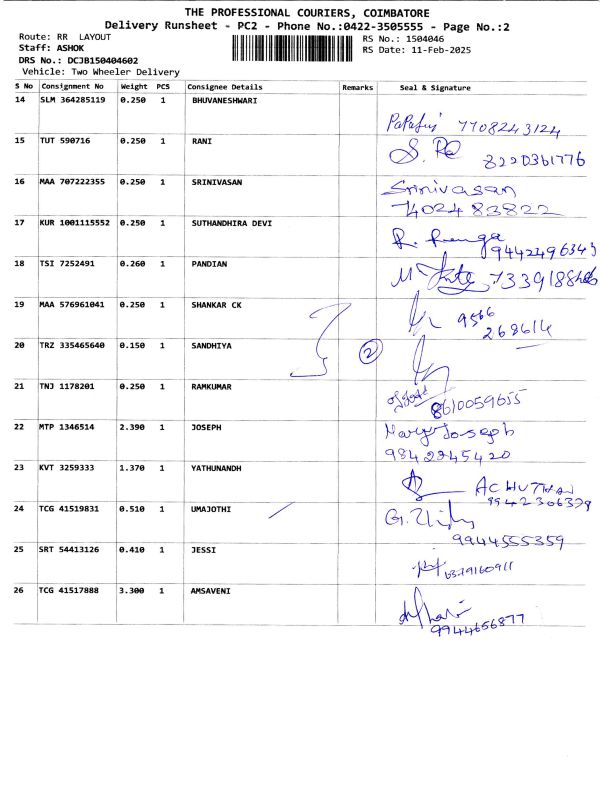 THE PROFESSIONAL COURIERS, COIMBATORE
Delivery Runsheet - PC2 - Phone No.:0422-3505555 - Page No.:2
Route: RR LAYOUT
RS No.: 1504046
Staff: ASHOK
RS Date: 11-Feb-2025
DRS No.: DCJB150404602
Vehicle: Two Wheeler Delivery
S No Consignment No Weight PCS Consignee Details Remarks Seal & Signature
14 SLM 364285119 0.250 1 BHUVANESHWARI
7708243124
15 TUT 590716 0.250 1 RANI
S.
8220361776
16 MAA 707222355 0.250 1 SRINIVASAN
Srinivasan
7402483822
17 KUR 1001115552 0.250 1 SUTHANDHIRA DEVI
R. Renga
9442496343
18 TSI 7252491 0.260 1 PANDIAN
19 MAA 576961041 0.250 1 SHANKAR CK
9566
268614
20 TRZ 335465640 0.150 1 SANDHIYA
2
21 TNJ 1178201 0.250 1 RAMKUMAR
8610059655
22 MTP 1346514 2.390 1 JOSEPH
Mary Joseph
9842245420
23 KVT 3259333 1.370 1 YATHUNANDH
ACHUTHAN
9942306379
24 TCG 41519831 0.510 1 UMAJOTHI
9944555359
25 SRT 54413126 0.410 1 JESSI
26 TCG 41517888 3.300 1 AMSAVENI
9944656877